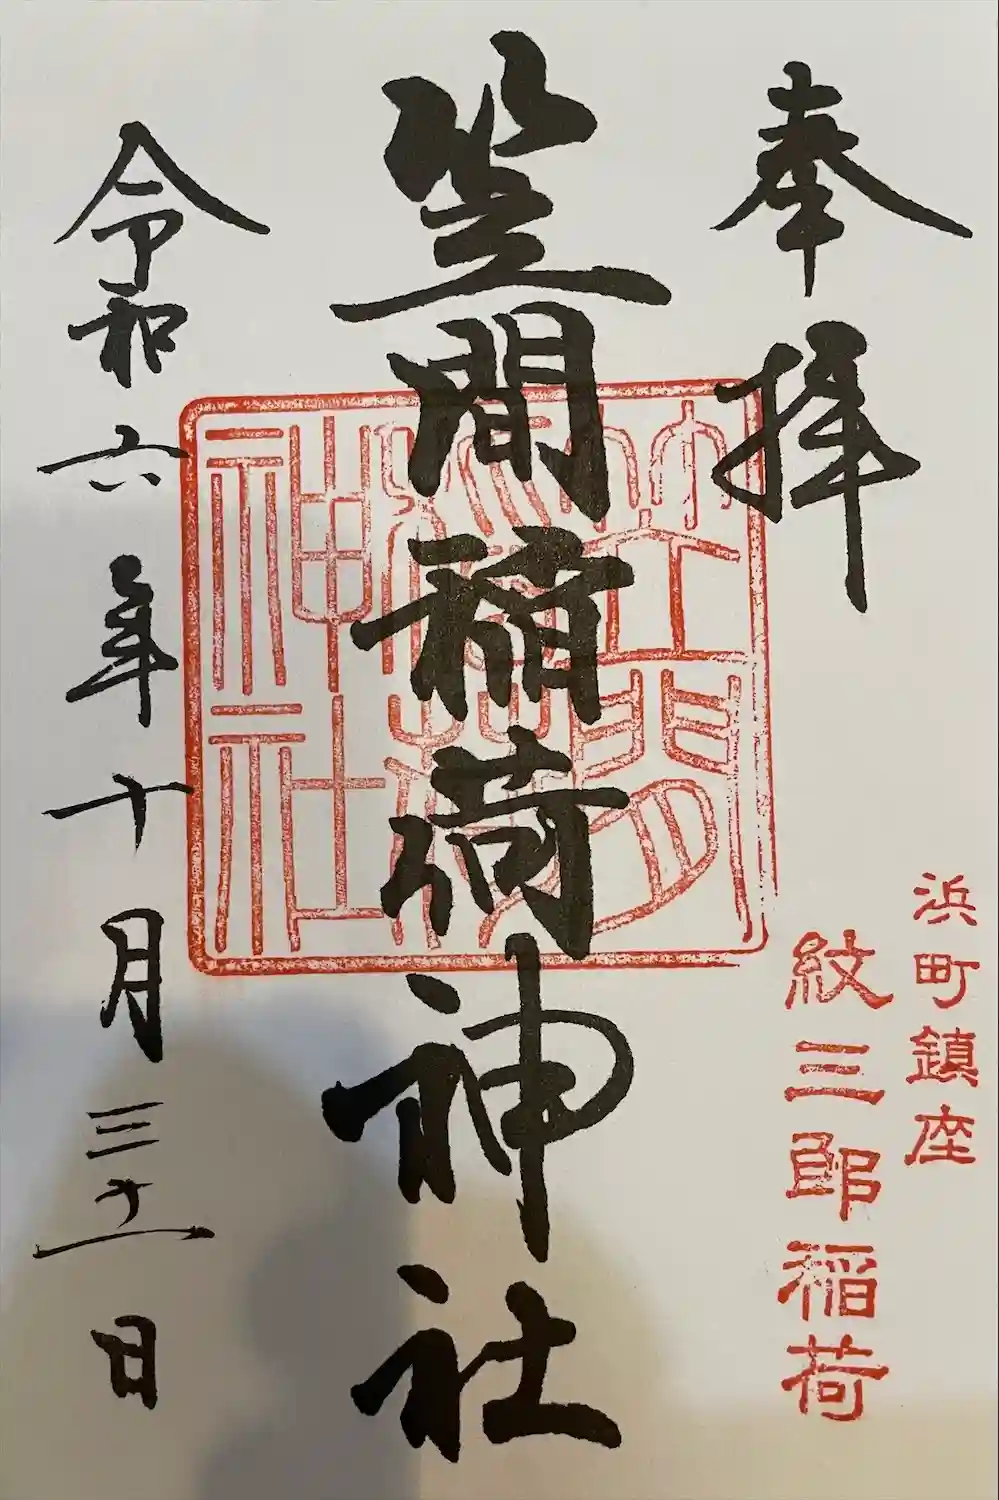 奉拝
浜町鎮座
紋三郎稲荷
笠間稲荷神社
笠間稲荷神社
令和六年十月三十一日